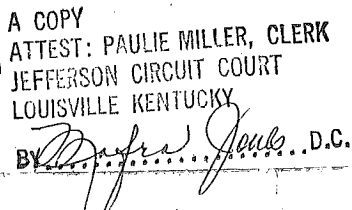 A COPY
ATTEST: PAULIE MILLER, CLERK
JEFFERSON CIRCUIT COURT
LOUISVILLE KENTUCKY
BY Jones D.C.